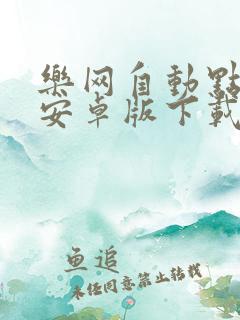 樂网自動點
安卓版下載
鱼追
未经同意禁止转载